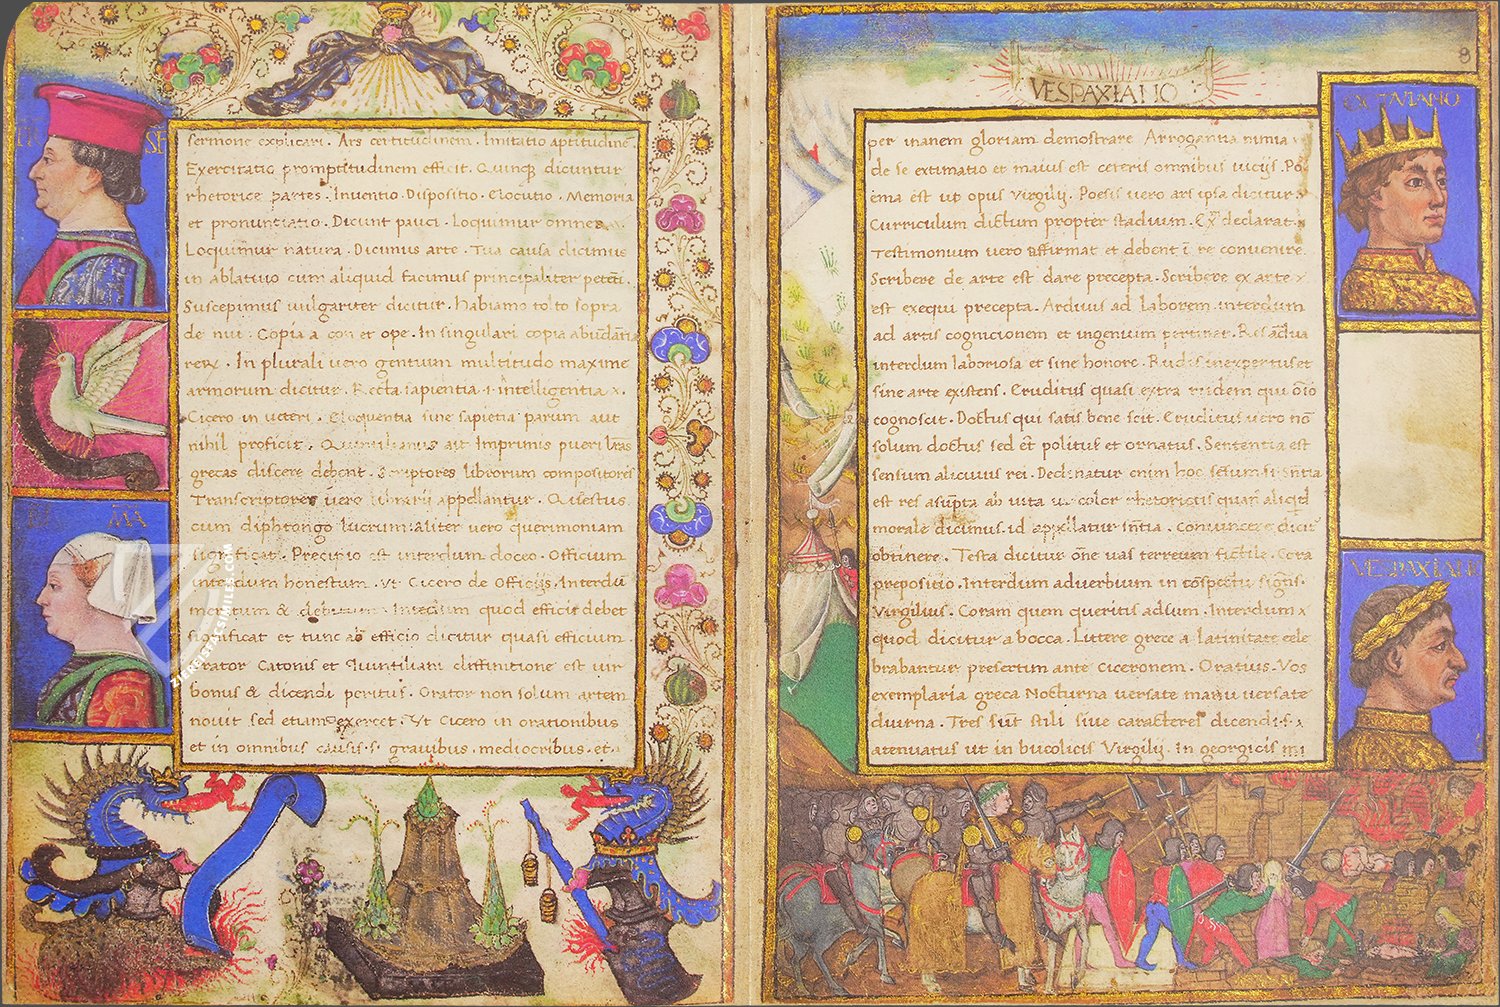 sermone explicari. Ars certitudinem. Imitatio aptitudinē.
Exercitatio promptitudinem efficit. Quinq3 dicuntur
rhetorice partes. Inventio. Dispositio. Elocutio. Memoria
et pronunctatio. Dicunt pauci. Loquimur omnes.
Loquimur natura. Dicimus arte. Tua causa dicimus
in ablativo cum aliquid facimus principaliter
Suscepimus vulgariter dicitur. habiamo tolto sopra
de nui. Copia a con et ope. In singulari copia abūdātia
rerx. In plurali vero gentium multitudo maxime
armorum dicitur. Recta sapientia. i. intelligentia x.
Cicero in veteri. Eloquentia sine sapiētia parum aut
nihil proficit. Quintilianus ait Imprimis pueri lr̄as
grecas discere debent. Scriptores librorum compositores
Transcriptores vero librarii appellantur. Questus
cum diphtongo lucrum: aliter vero querimoniam
significat. Precipio est interdum doceo. Officium
interdum honestum. vt Cicero de Officijs. Interdū
meritum & Interdum quod efficit debet
significat et tunc ab efficio dicitur quasi efficium.
Orator Catonis et Quintiliani diffinitione est vir
bonus & dicendi peritus. Orator non solum artem
novit sed etiam exercet. Vt Cicero in orationibus
et in omnibus causis. s. gravibus. mediocribus. et
VESPAXIANO
8
per inanem gloriam demostrare. Arrogantia nimia
de se extimatio et maius est ceteris omnibus vicijs. Po
ema est vt opus Virgilij. Poesis vero ars ipsa dicitur.
Curriculum dictum propter stadium. Ex declarat
Testimonium vero affirmat et debent ī re convenire
Scribere de arte est dare precepta. Scribere ex arte
est exequi precepta. Arduus ad laborem. interdum
ad artis cognicionem et ingenium pertinet. Res ardua
interdum laboriosa et sine honore. Rudis inexpertus et
sine arte existens. Eruditus quasi extra rudem qui oīo
cognoscit. Doctus qui satis bene scit. Eruditus vero nō
solum doctus sed et politus et ornatus. Sententia est
sensum alicuius rei. Declinatur enim hoc sensum si. Sn̄tia
est res asūpta ab vita vl color rhetoricus quasi aliqd
morale dicimus. id appellatur sn̄tia. Convincere dicit
obtinere. Testa dicitur oē vas terreum fictile. Cora
preposicio. Interdum adverbium in cōspectu signīs.
Virgilius. Coram quem queritis adsum. Interdum x
quod dicitur a bocca. Littere grece a latinitate cele
brabantur presertim ante Ciceronem. Oratius. Vos
exemplaria greca Nocturna versate manu versate
diurna. Tres sūt stili sive caracteres dicendi. s.
atenuatus vt in bucolicis Virgilij. In georgicis mi
OCTVIANO
VESPAXIANO
MA
ZIEREIS-FACSIMILES.COM